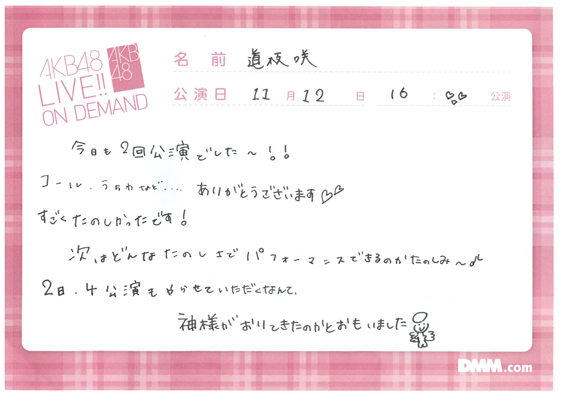 AKB48
LIVE!!
ON DEMAND
AKB
48
名 前 道枝咲
公演日 11 月 12 日 16 : 公演
今日も2回公演でした〜!!
コール、うちわなど.... ありがとうございます♡♡
すごくたのしかったです!
次はどんなたのしさでパフォーマンスできるのかたのしみ〜♪
2日、4公演もやらせていただくなんて、
神様がおりてきたのかとおもいました
DMM.com